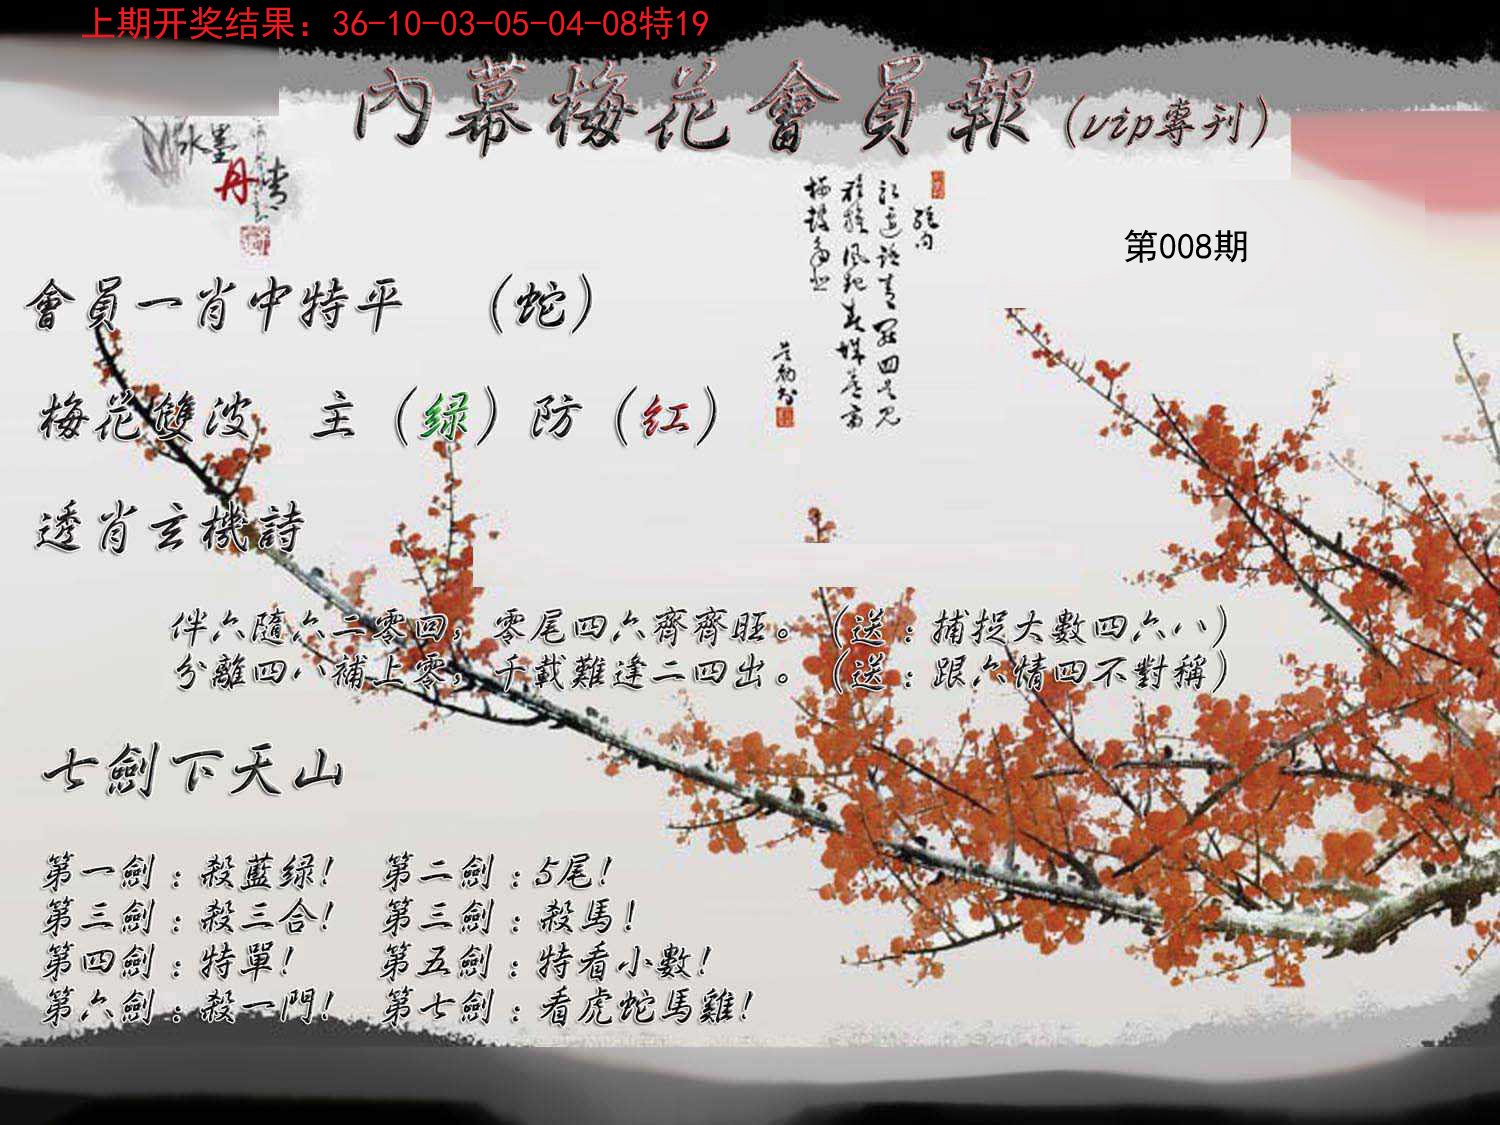 上期开奖结果：36-10-03-05-04-08特19
內幕梅花會員報（vip專刊）
水墨
丹青
第008期
會員一肖中特平 （蛇）
梅花雙波 主（绿）防（红）
透肖玄機詩
伴六隨六二零四，零尾四六齊齊旺。（送：捕捉大數四六八）
分離四八補上零，千載難逢二四出。（送：跟六情四不對稱）
七劍下天山
第一劍：殺藍绿！ 第二劍：5尾！
第三劍：殺三合！ 第三劍：殺馬！
第四劍：特單！ 第五劍：特看小數！
第六劍：殺一門！ 第七劍：看虎蛇馬雞！